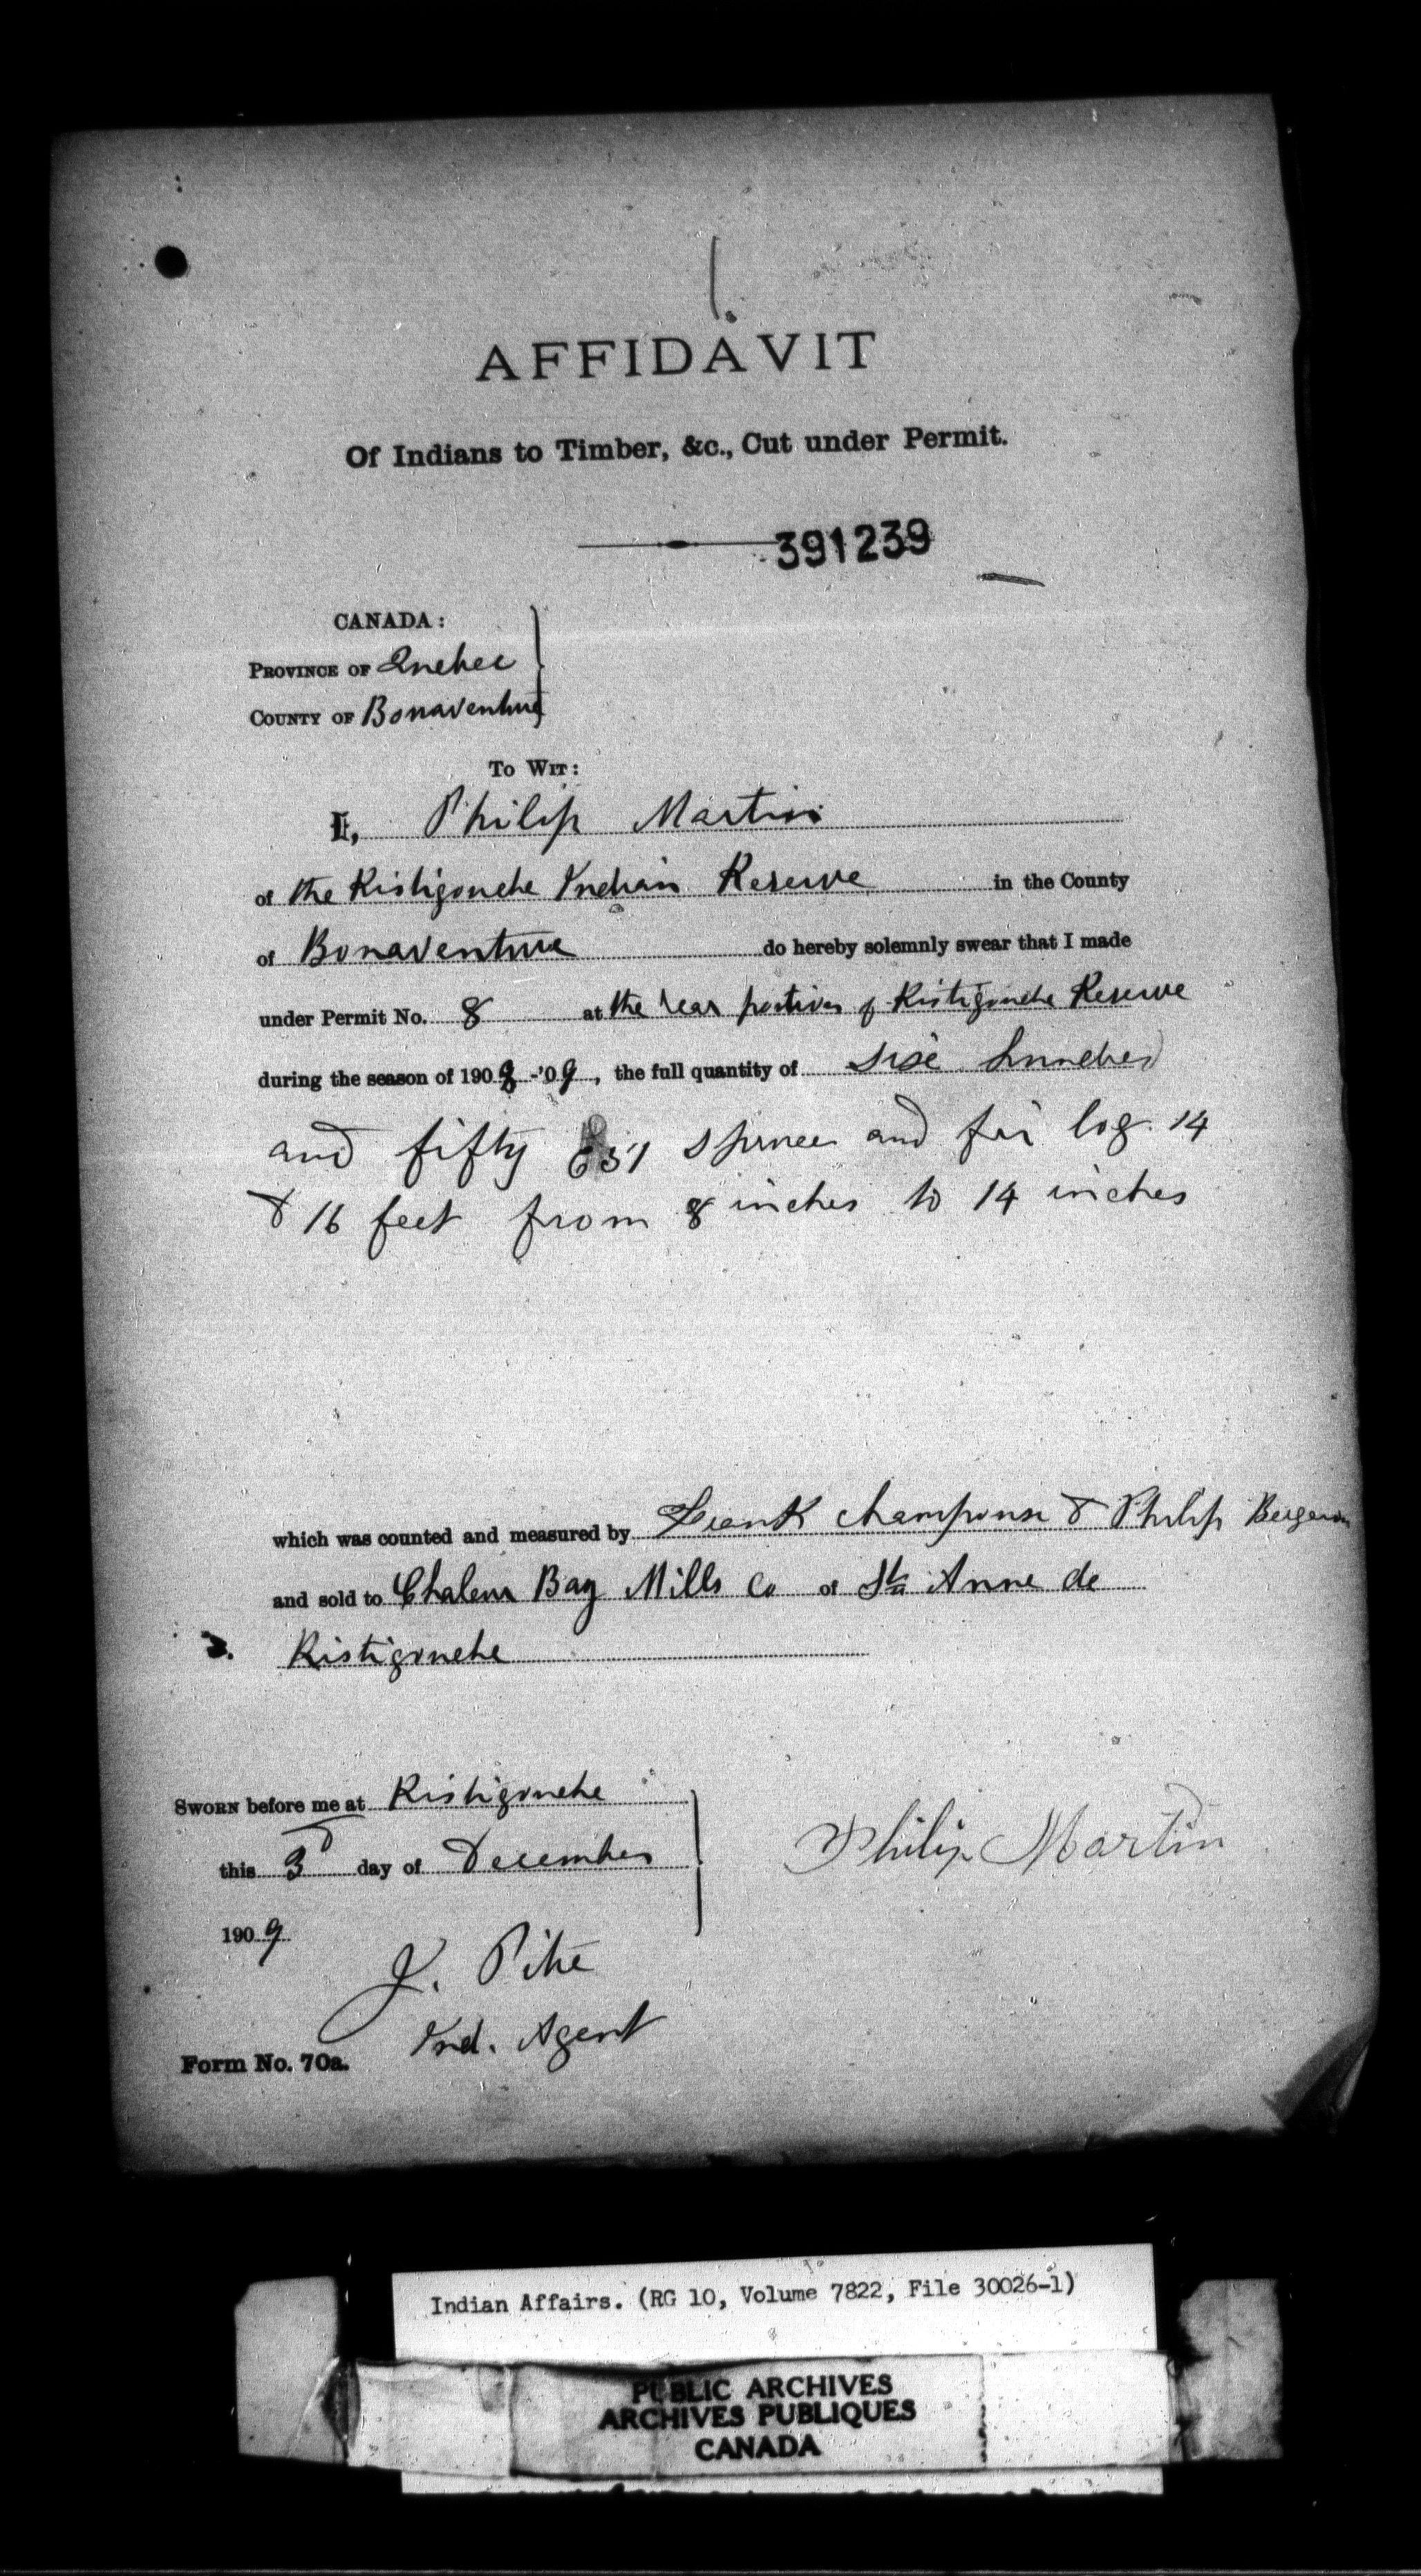 AFFIDAVIT
Of Indians to Timber, &c., Cut under Permit.
391239
CANADA:
PROVINCE OF Quebec
COUNTY OF Bonaventure
TO WIT:
I, Philip Martin
of the Ristigouche Indian Reserve in the County
of Bonaventure do hereby solemnly swear that I made
under Permit No. 8 at the rear portion of Ristigouche Reserve
during the season of 1908-'09, the full quantity of six hundred
and fifty 651 spruce and fir log 14
& 16 feet from 8 inches to 14 inches
which was counted and measured by Frank & Philip Bergeron
and sold to Chaleur Bay Mills Co of Ste Anne de
Ristigouche
SWORN before me at Ristigouche
this 3d day of December
1909
Philip Martin
J. Pitre
Ind. Agent
Form No. 70a.
Indian Affairs. (RG 10, Volume 7822, File 30026-1)
PUBLIC ARCHIVES
ARCHIVES PUBLIQUES
CANADA